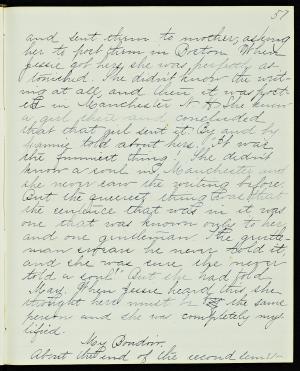 57
and sent them to mother, asking
her to post them in Boston. When
Jessie got hers, she was perfectly as-
tonished. She didn't know the writ-
ing at all, and then it was post-
ed in Manchester N.H. She knew
a girl there and concluded
that that girl sent it. By and by
told about hers. It was
the funniest thing! She didn't
know a soul in Manchester and
she never saw the writing before.
But the queerest thing was that
the sentence that was in it was
one that was known only to her
and one gentleman. The gentle-
man swears he never told it,
and she was sure she "never
told a soul!" But she had told
May. When Jessie heard this, she
thought hers must be the same
person and she was completely mys-
tified.
My Boudoir.
About the end of the second sem-